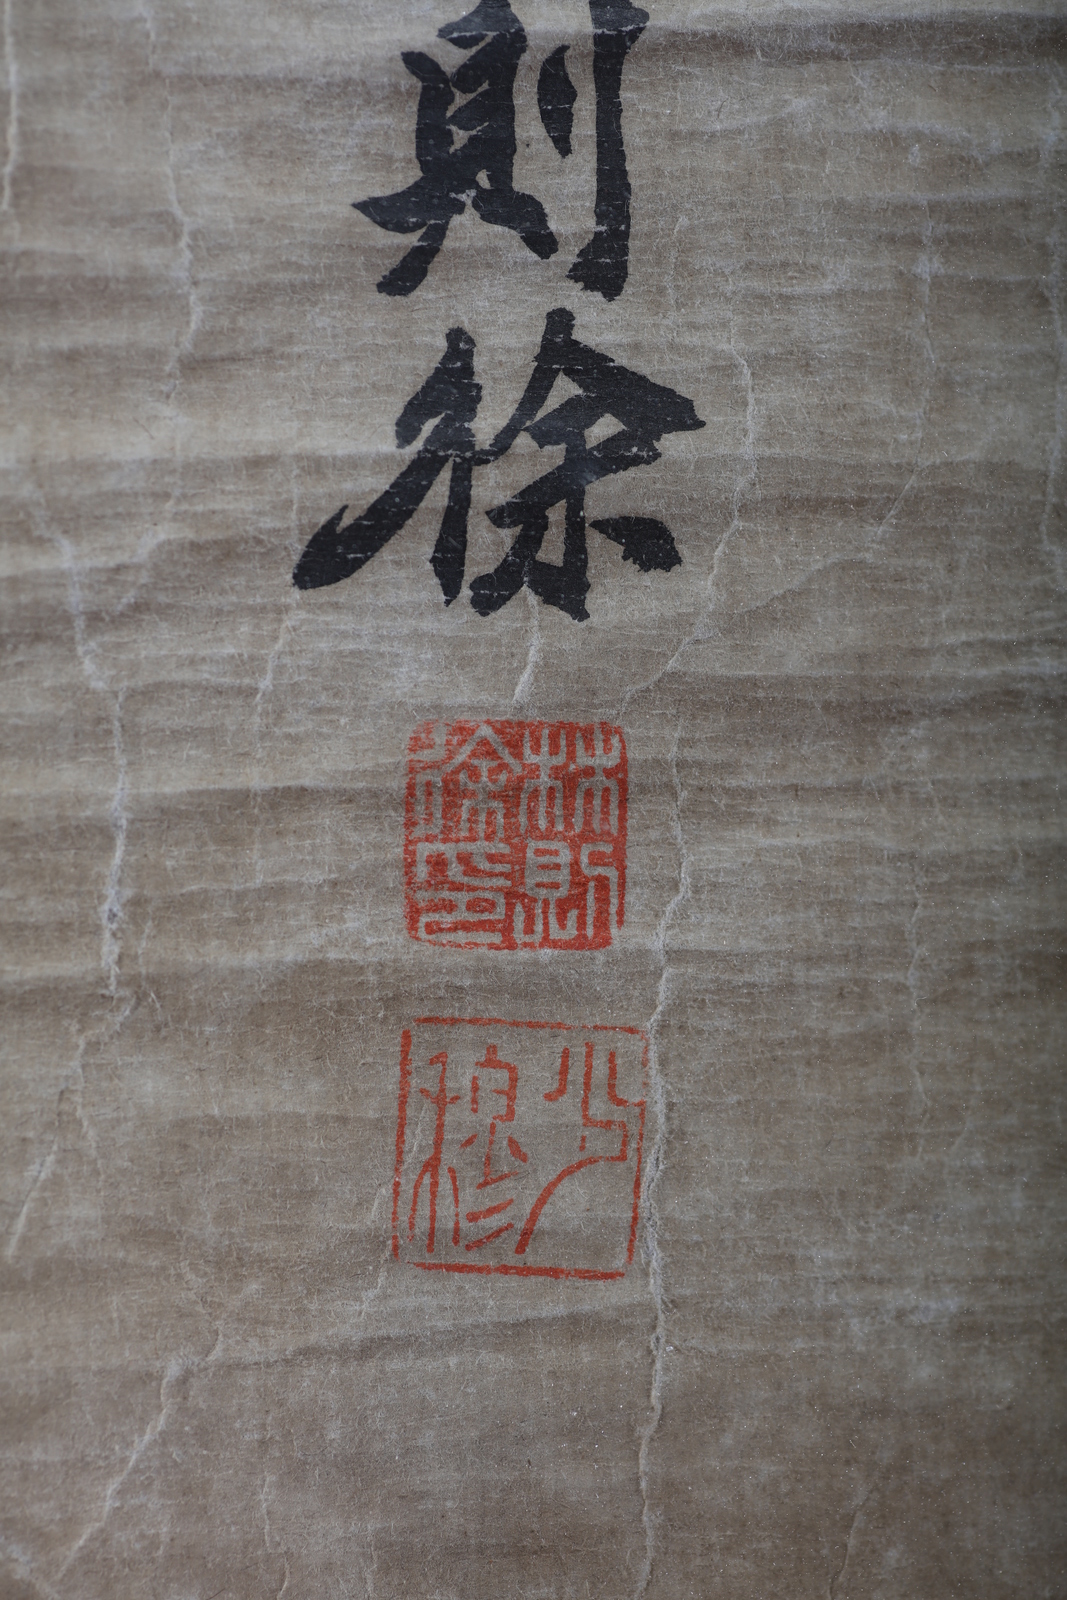 則徐
林則
徐印
少穆